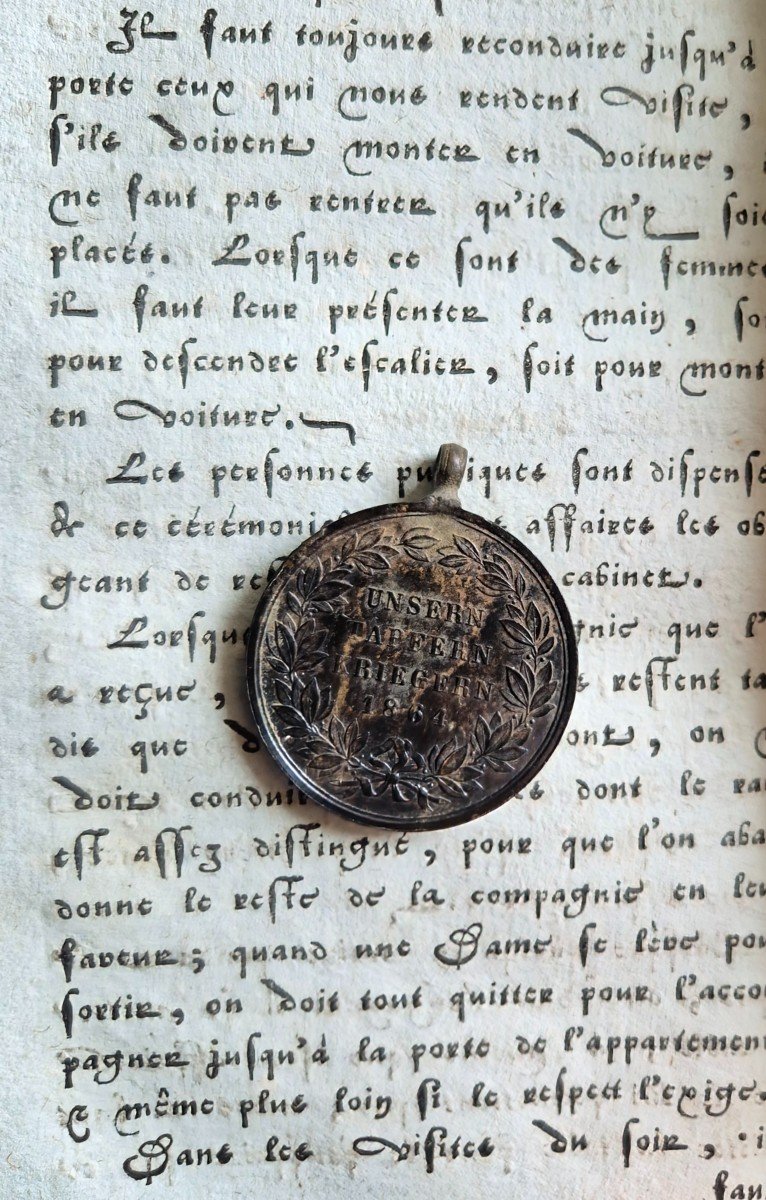 Il faut toujours reconduire jusqu'à
porte ceux qui nous rendent visite,
s'ils doivent monter en voiture,
ne faut pas rentrer qu'ils n'y soie
placés. Lorsque ce sont des femmes
il faut leur présenter la main, so
pour descendre l'escalier, soit pour mont
en voiture.
Les personnes pu iques sont dispense
& ce cérémoni s affaires les ob
geant de re cabinet.
Lorsqu gnie que l'
a reçue, s restent ta
dis que d ont, on
doit condui s dont le ra
est assez distingué, pour que l'on aba
donne le reste de la compagnie en leu
faveur; quand une Dame se lève pou
sortir, on doit tout quitter pour l'acco
pagner jusqu'à la porte de l'appartemen
& même plus loin si le respect l'exige.
Dans les visites du soir, i
fau
UNSERN
TAPFERN
KRIEGERN
1864